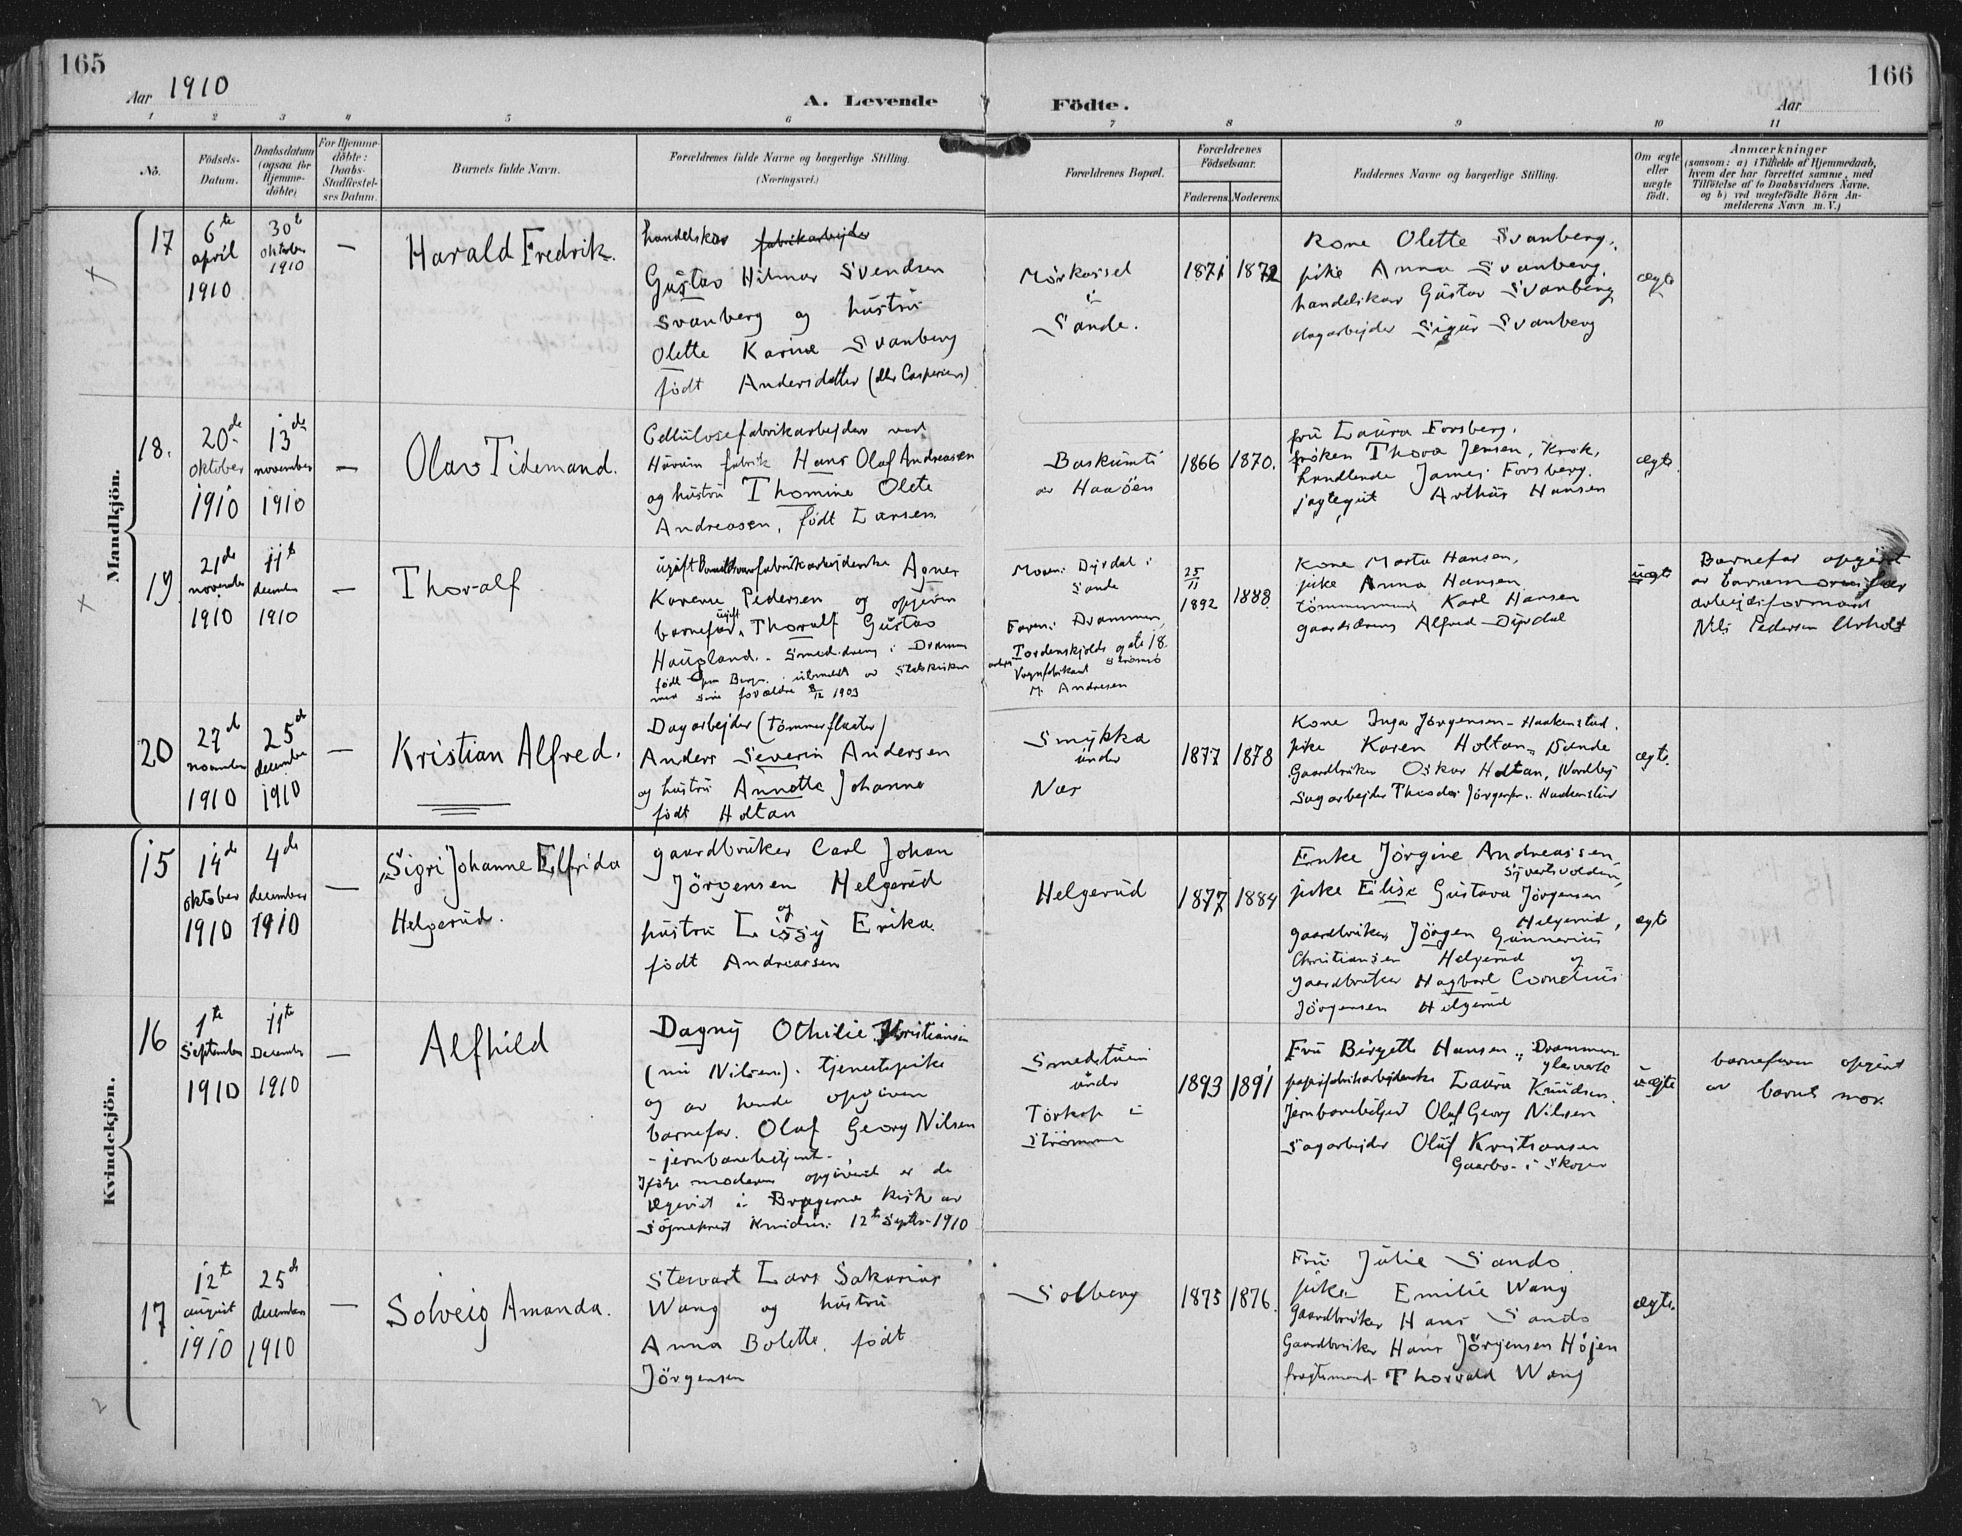 165
Aar 1910
A. Levende
Födte.
166
Aar
1 2 3 4 5 6 7 8 9 10 11
No.
Födsels-
Datum.
Daabsdatum
(ogsaa for
Hjemme-
döbte)
For Hjemme-
döbte:
Daabs-
Stadfæstel-
ses Datum.
Barnets fulde Navn.
Forældrenes fulde Navne og borgerlige Stilling.
(Næringsvei.)
Forældrenes Bopæl.
Forældrenes
Födselsaar.
Faderens. Moderens.
Faddernes Navne og borgerlige Stilling.
Om ægte
eller
uægte
født.
Anmærkninger
(saasom: a) i Tilfælde af Hjemmedaab,
hvem der har forrettet samme, med
Tilföielse af to Daabsvidners Navne,
og b) ved uægtefödte Börn An-
melderens Navn m. V.)
Mandkjön.
17
6te
april
1910
30te
oktober
1910
—
Harald Fredrik.
handelskar fabrikarbejder
Gustav Hilmar Svendsen
Svanberg og hustru
Olette Karine Svanberg
födt Andersdatter
Mörkassel
i
Sande.
1871
1872
Kone Olette Svanberg,
pike Anna Svanberg,
handelskar Gustav Svanberg
dagarbejder Sigur Svanberg
ægte
18.
20de
oktober
1910
13de
november
1910
—
Olav Tidemand.
Cellulosefabrikarbejder ved
fabrik Hans Olaf Andreasen
og hustru Thomine Olete
Andreasen, födt Larsen.
av Haaöen
1866
1870.
fru Laura Forsberg,
fröken Thora Jensen, Krok,
handlende James Forsberg.
Arthur Hansen
ægte.
19
21de
november
1910
11te
december
1910
—
Thoralf
Agnes
Karene Pedersen og opgiven
barnefar ugift Thoralf Gustav
Haugland. Smeddreng i Drammen
födt
med sine forældre 8/12 1903
Moren: Dyrdal i
Sande
Faren: Drammen,
Tordenskjolds gate 18.
Vognfabrikant Strömsö
M. Andresen
25
11
1892
1888
Kone Marta Hansen,
pike Anna Hansen
tömmermand Karl Hansen
gaardsdreng Alfred Dyrdal
uægte
Barnefar opgivet
av barnemorens far
arbejdsformand
Nils Pedersen
20
27de
november
1910
25de
december
1910
—
Kristian Alfred.
Dagarbejder (tömmerflaater)
Anders Severin Andersen
og hustru Annette Johanne
födt Holtan
Smykka
under
Nær
1877
1878
Kone Inga Jörgensen - Haakenstad.
pike Karen Holtan, Sande
Gaardbruker Oskar Holtan, Nordby
Sagarbejder Theodor Jörgensen. Haakenstad
ægte.
Kvindekjön.
15
14de
oktober
1910
4de
december
1910
—
Sigri Johanne Elfrida
Helgerud.
gaardbruker Carl Johan
Jörgensen Helgerud
og
hustru Lissy Erika
födt Andreassen
Helgerud
1877
1884
Enke Jörgine Andreassen,
Syvertsvolden,
pike Elise Gustava Jörgensen
Helgerud,
gaardbruker Jörgen Gunnerius
Christiansen Helgerud og
gaardbruker Hagbart Cornelius
Jörgensen Helgerud
ægte
16
1te
September
1910
11te
December
1910
—
Alfhild
Dagny Othilie Kristiansen
(nu Nilsen). tjenestepike
og av hende opgiven
barnefar. Olaf Georg Nilsen
- jernbanebetjent -.
Ifølge moderens opgivende er de
ægeviet i Bragernæs kirke av
Sognepræst Knudsen 12te Septbr 1910
Smedstuen
under
Torkop i
Strömmen
1893
1891
Fru Birgette Hansen, Drammens
glasværk
papirfabrikarbejderske Laura Knudsen.
jernbanebetjent Olaf Georg Nilsen
Sagarbejder Oluf Kristiansen
Gaarbo i Skoger
uægte
barnefaren opgivet
av barnets mor.
17
12te
august
1910
25de
december
1910
—
Solveig Amanda.
Stewart Lars Sakarias
Wang og hustru
Anna Bolette, födt
Jörgensen
Solberg
1875
1876.
Fru Julie Sando
pike Emilie Wang
Gaardbruker Hans Sando
Gaardbruker Hans Jörgensen Höjen
fragtemand Thorvald Wang
ægte.